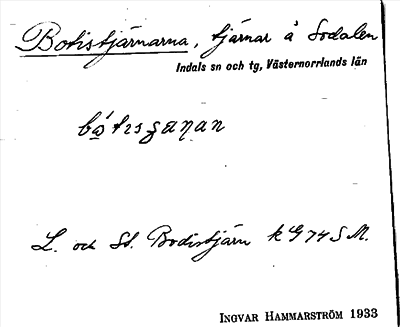 Botistjärnarna, tjärnar å Sodalen
Indals sn och tg, Västernorrlands län
L. och St. Bodistjärn k G 74 S M.
INGVAR HAMMARSTRÖM 1933